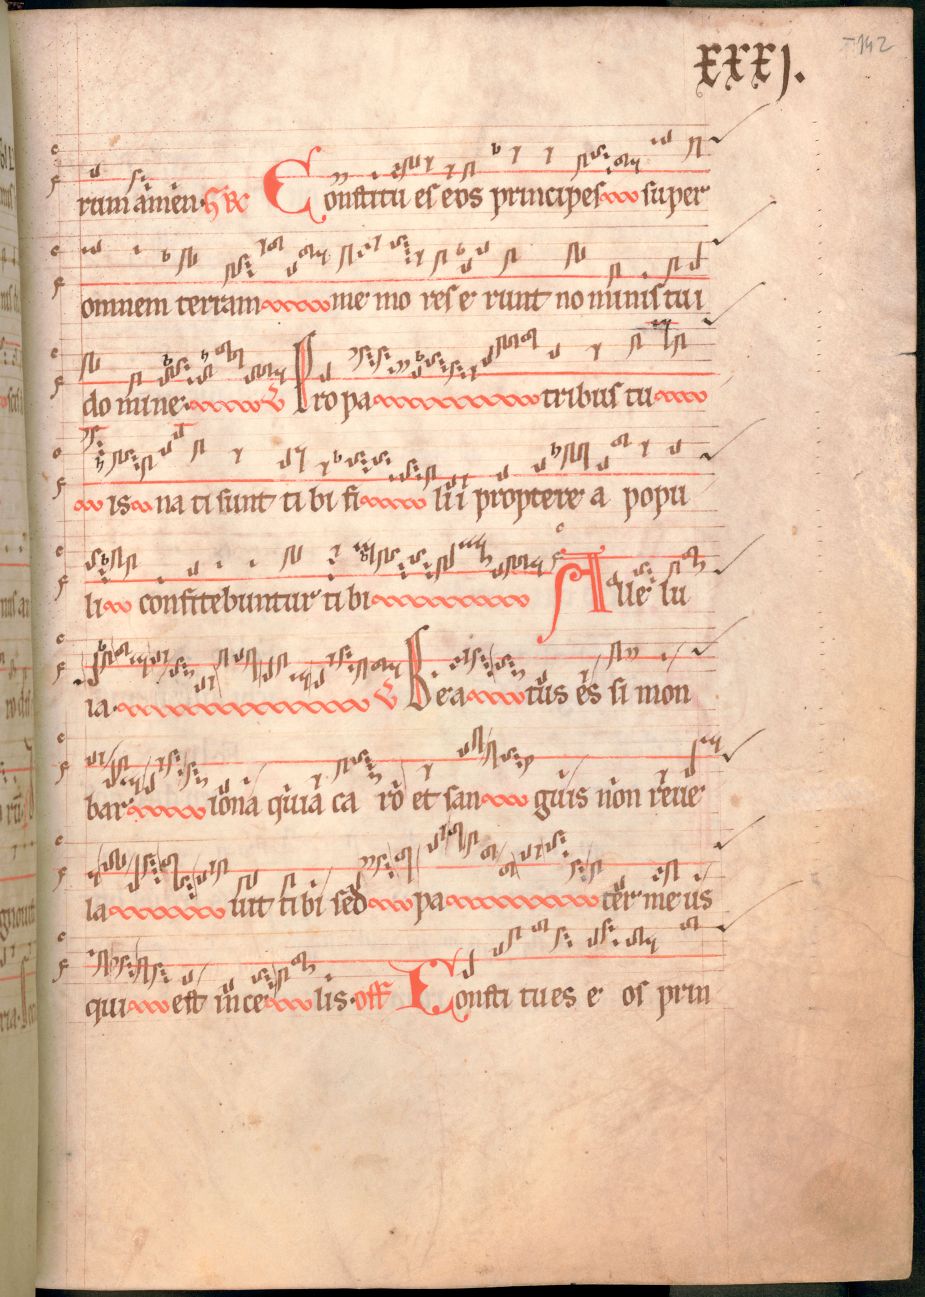 XXXI.
142
rum amen. Gr Constitu es eos principes super
omnem terram memo res e runt no minis tu i
do mine. V Pro pa tribus tu
is na ti sunt ti bi fi li i proptere a popu
li confitebuntur ti bi Alle lu
ia. V Bea tus es si mon
bar iona quia ca ro et san guis non reve
la vit ti bi sed pa ter me us
qui est in ce lis. off Consti tu es e os prin